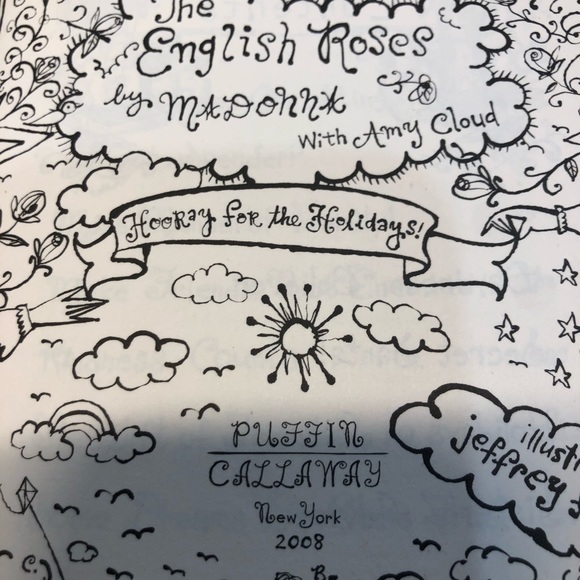 The
English Roses
by MADONNA
With Amy Cloud
Hooray for the Holidays!
PUFFIN
CALLAWAY
New York
2008
jeffrey